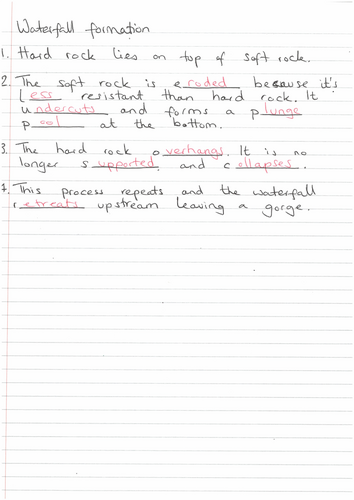 Waterfall formation
1. Hard rock lies on top of soft rock.
2. The soft rock is eroded because it's
less resistant than hard rock. It
undercuts and forms a plunge
pool at the bottom.
3. The hard rock overhangs. It is no
longer supported and collapses.
7. This process repeats and the waterfall
retreats upstream leaving a gorge.